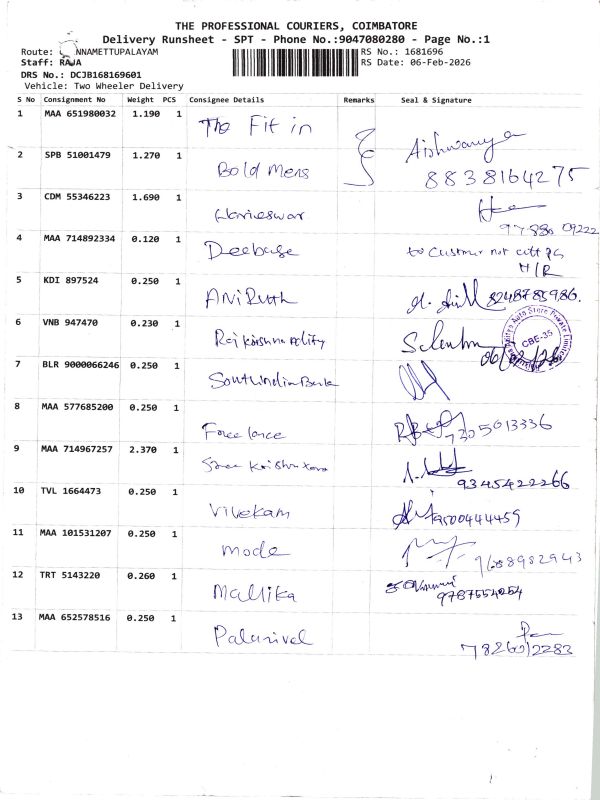 THE PROFESSIONAL COURIERS, COIMBATORE
Delivery Runsheet - SPT - Phone No.:9047080280 - Page No.:1
Route: NNAMETTUPALAYAM
RS No.: 1681696
Staff: RAJA
RS Date: 06-Feb-2026
DRS No.: DCJB168169601
Vehicle: Two Wheeler Delivery
S No Consignment No Weight PCS Consignee Details Remarks Seal & Signature
1 MAA 651980032 1.190 1 The Fit in Aishwarya
2 SPB 51001479 1.270 1 Bold Mens 8838164275
3 CDM 55346223 1.690 1
4 MAA 714892334 0.120 1 to not
N/R
5 KDI 897524 0.250 1 ANiRuth 8248785986.
6 VNB 947470 0.230 1 CBE-35
7 BLR 9000066246 0.250 1 South Indian Bank
8 MAA 577685200 0.250 1 Free lance 7305013336
9 MAA 714967257 2.370 1 Sree 9345422266
10 TVL 1664473 0.250 1 Vivekam 9500444459
11 MAA 101531207 0.250 1 mode
12 TRT 5143220 0.260 1 Mallika 9787554254
13 MAA 652578516 0.250 1 Palanivel